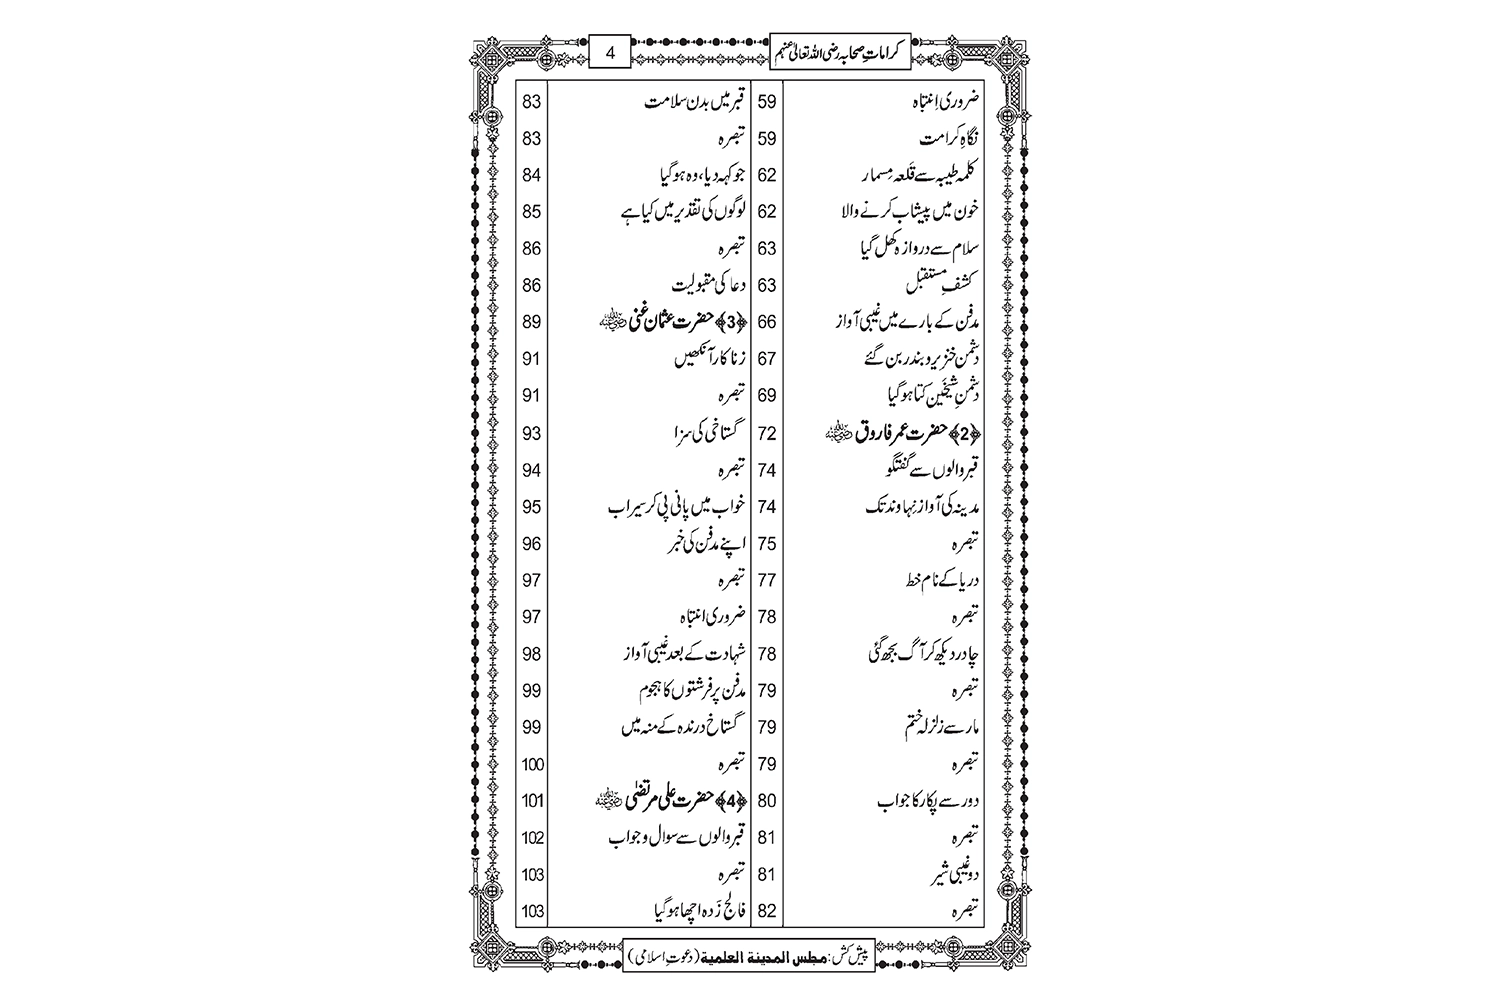 کراماتِ صحابہ رضی اللہ تعالیٰ عنہم
4
ضروری اِنتباہ 59
نگاہِ کرامت 59
کلمہ طیبہ سے قَلعہ مِسمار 62
خون میں پیشاب کرنے والا 62
سلام سے دروازہ کھل گیا 63
کشفِ مستقبل 63
مدفن کے بارے میں غیبی آواز 66
دشمن خنزیر و بندر بن گئے 67
دشمنِ شیخین کتا ہو گیا 69
﴿2﴾ حضرت عمر فاروق رضی اللہ عنہ 72
قبر والوں سے گفتگو 74
مدینہ کی آواز نہاوند تک 74
تبصرہ 75
دریا کے نام خط 77
تبصرہ 78
چادر دیکھ کر آگ بجھ گئی 78
تبصرہ 79
مار سے زلزلہ ختم 79
تبصرہ 79
دور سے پکار کا جواب 80
تبصرہ 81
دو غیبی شیر 81
تبصرہ 82
قبر میں بدن سلامت 83
تبصرہ 83
جو کہہ دیا، وہ ہو گیا 84
لوگوں کی تقدیر میں کیا ہے 85
تبصرہ 86
دعا کی مقبولیت 86
﴿3﴾ حضرت عثمان غنی رضی اللہ عنہ 89
زنا کار آنکھیں 91
تبصرہ 91
گستاخی کی سزا 93
تبصرہ 94
خواب میں پانی پی کر سیراب 95
اپنے مدفن کی خبر 96
تبصرہ 97
ضروری انتباہ 97
شہادت کے بعد غیبی آواز 98
مدفن پر فرشتوں کا ہجوم 99
گستاخ درندہ کے منہ میں 99
تبصرہ 100
﴿4﴾ حضرت علی مرتضیٰ رضی اللہ عنہ 101
قبر والوں سے سوال و جواب 102
تبصرہ 103
فالج زَدہ اچھا ہو گیا 103
پیش کش: مجلس المدینۃ العلمیۃ (دعوتِ اسلامی)